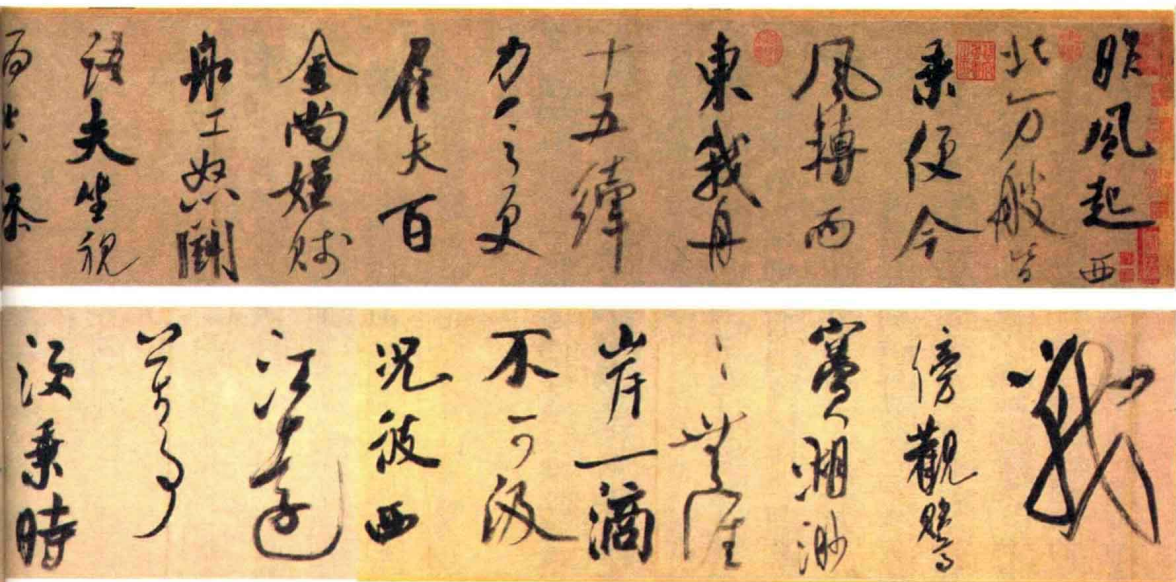 昨風起西
北万艘皆
乘便今
風轉而
東我舟
十五縴
力乏更
雇夫百
金尚嫌賤
船工怒鬭
語夫坐視
而怨添
戰
傍觀鶯
竇湖渺
〻無涯
岸一滴
不可汲
況彼西
江遠
萬事
須乘時